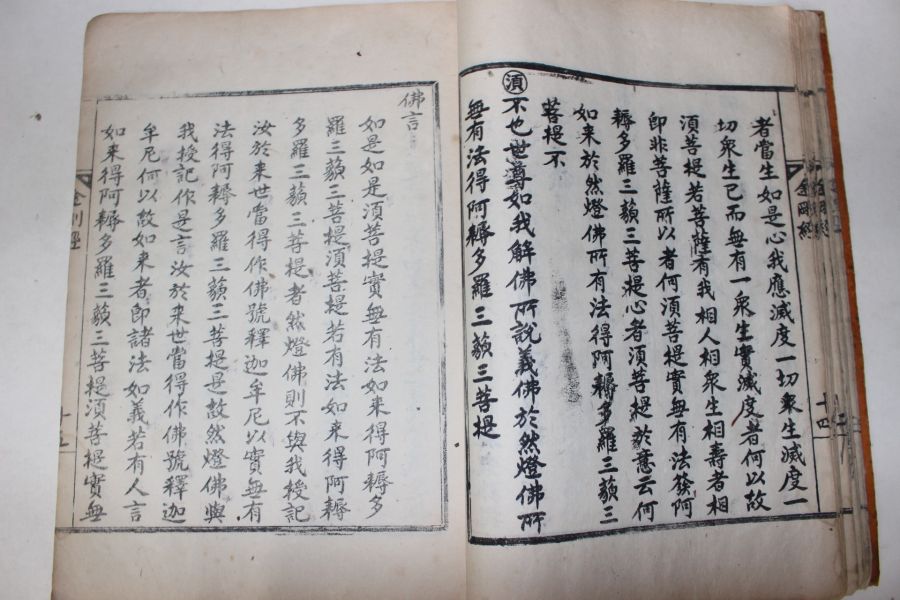 者當生如是心我應滅度一切衆生滅度一
切衆生已而無有一衆生實滅度者何以故
須菩提若菩薩有我相人相衆生相壽者相
即非菩薩所以者何須菩提實無有法發阿
耨多羅三藐三菩提心者須菩提於意云何
如来於然燈佛所有法得阿耨多羅三藐三
菩提不
須不也世尊如我解佛所說義佛於然燈佛所
無有法得阿耨多羅三藐三菩提
佛言
如是如是須菩提實無有法如来得阿耨多
羅三藐三菩提須菩提若有法如来得阿耨
多羅三藐三菩提者然燈佛則不與我授記
汝於来世當得作佛號釋迦牟尼以實無有
法得阿耨多羅三藐三菩提是故然燈佛與
我授記作是言汝於来世當得作佛號釋迦
牟尼何以故如来者即諸法如義若有人言
如来得阿耨多羅三藐三菩提須菩提實無
金剛經
十四